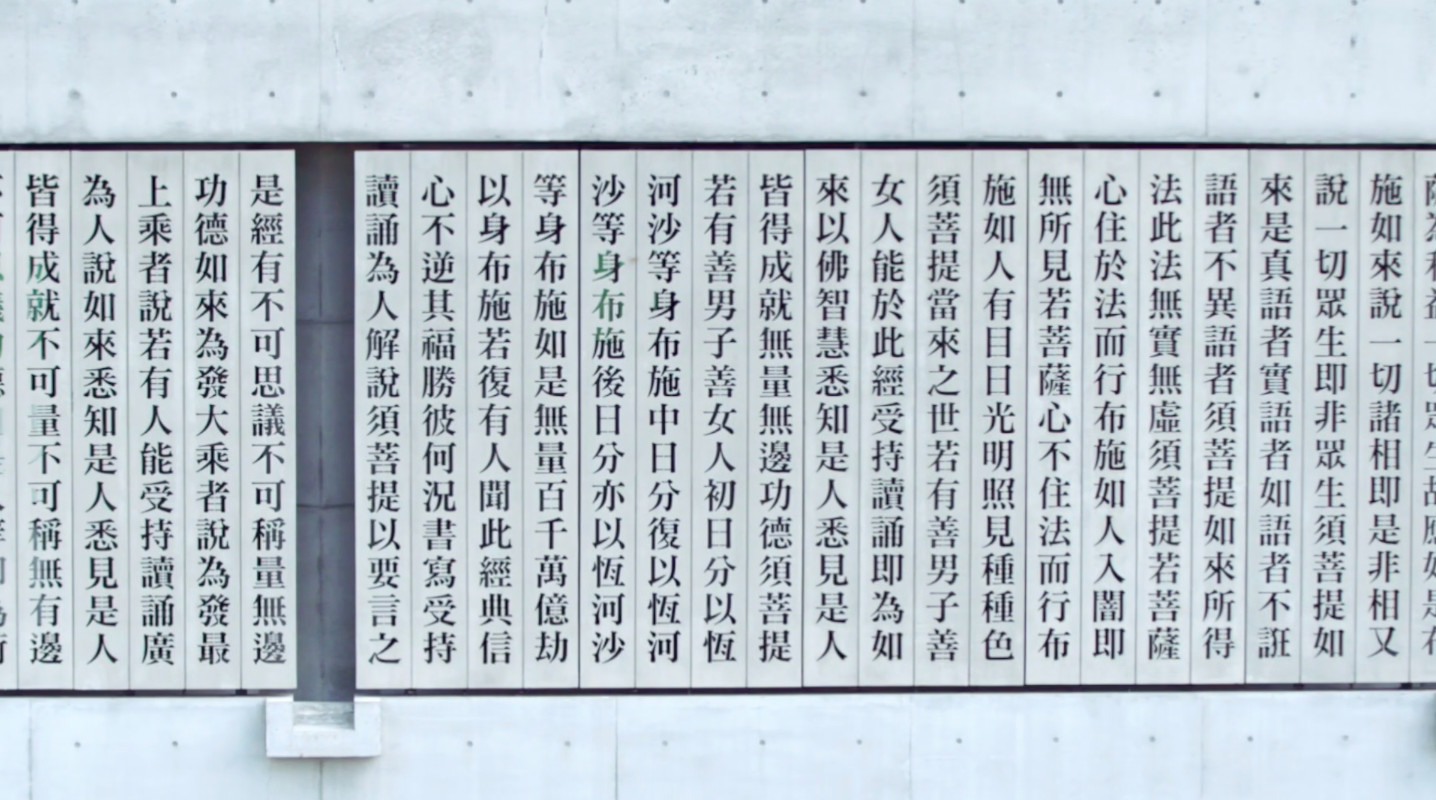 施如來說一切諸相即是非相又
說一切眾生即非眾生須菩提如
來是真語者實語者如語者不誑
語者不異語者須菩提如來所得
法此法無實無虛須菩提若菩薩
心住於法而行布施如人入闇即
無所見若菩薩心不住法而行布
施如人有目日光明照見種種色
須菩提當來之世若有善男子善
女人能於此經受持讀誦即為如
來以佛智慧悉知是人悉見是人
皆得成就無量無邊功德須菩提
若有善男子善女人初日分以恆
河沙等身布施中日分復以恆河
沙等身布施後日分亦以恆河沙
等身布施如是無量百千萬億劫
以身布施若復有人聞此經典信
心不逆其福勝彼何況書寫受持
讀誦為人解說須菩提以要言之
是經有不可思議不可稱量無邊
功德如來為發大乘者說為發最
上乘者說若有人能受持讀誦廣
為人說如來悉知是人悉見是人
皆得成就不可量不可稱無有邊